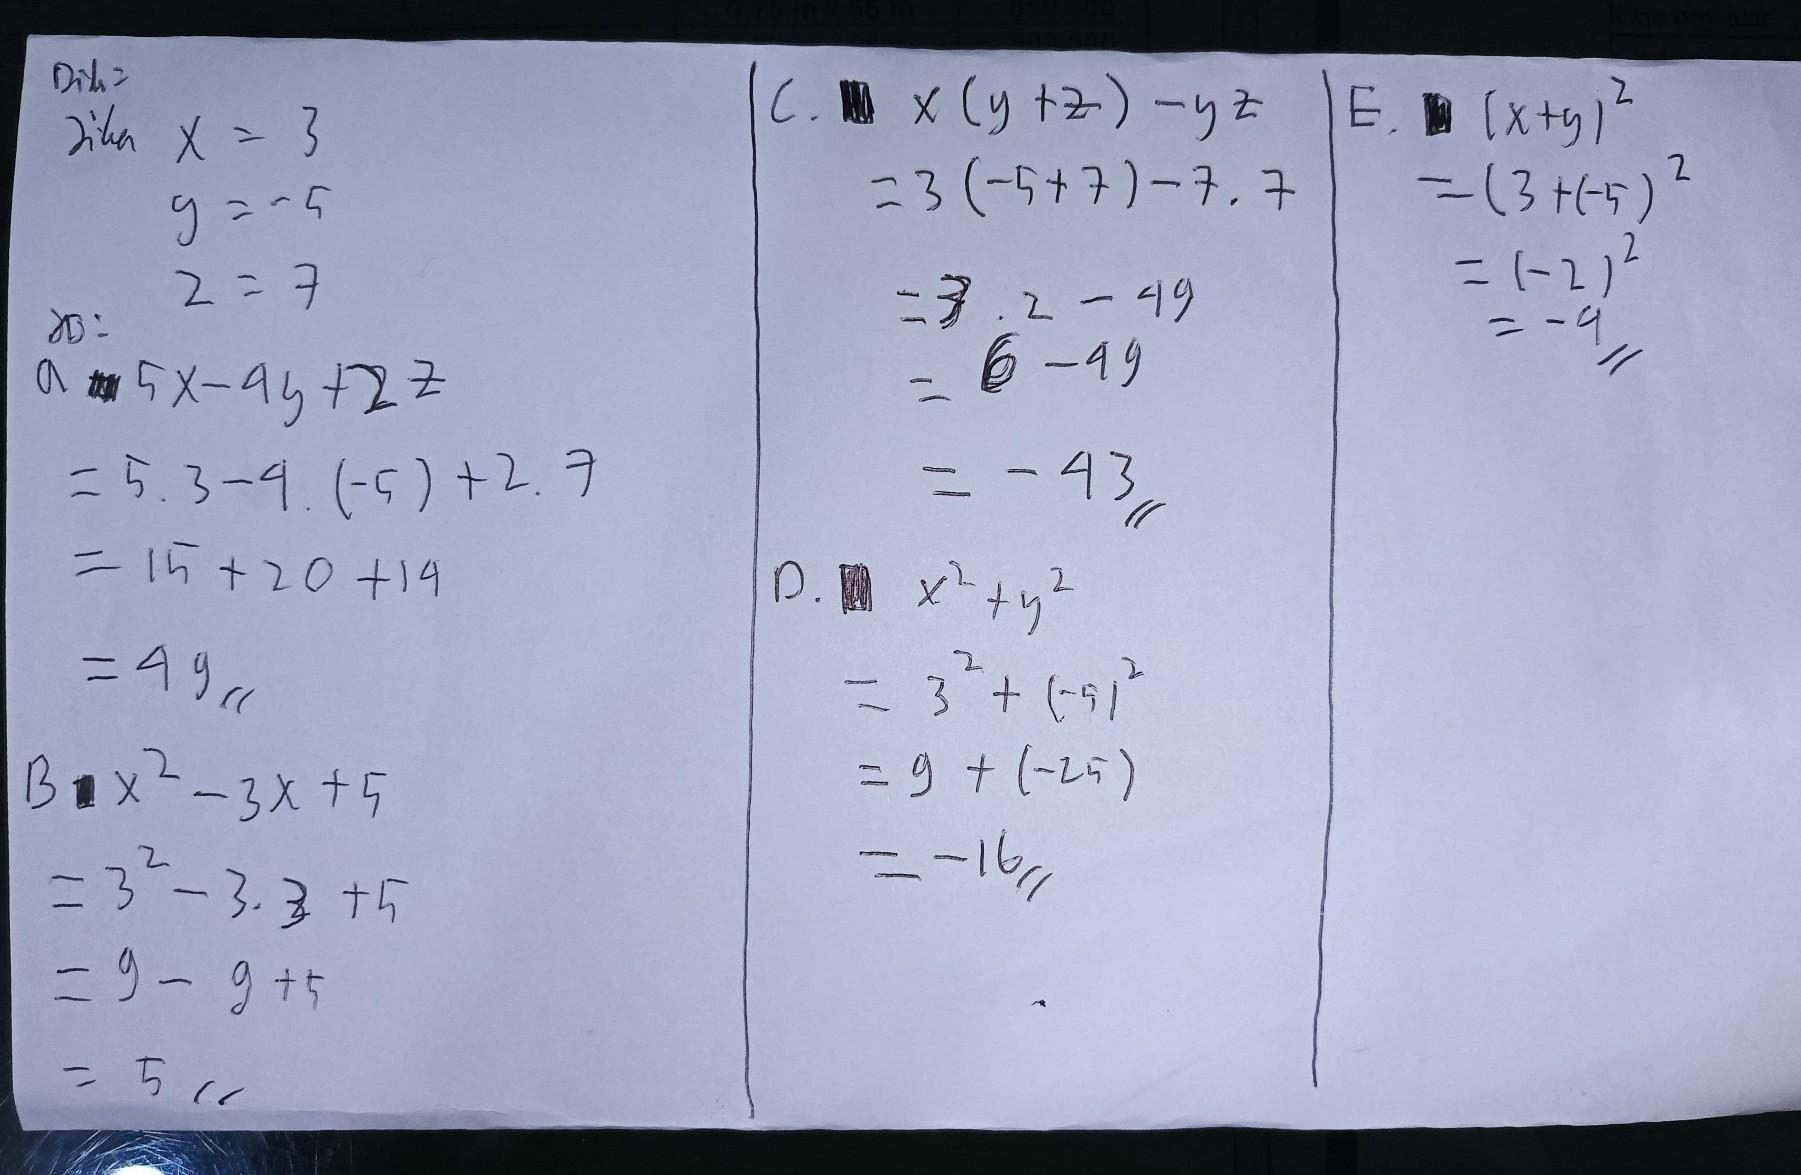 Dik=
Jika x = 3
y = -5
z = 7
a 5x-4y+2z
= 5.3-4.(-5)+2.7
= 15+20+14
= 49 //
B x² - 3x + 5
= 3² - 3.3 + 5
= 9 - 9 + 5
= 5 //
C. x (y+z) - yz
= 3 (-5+7) - 7.7
= 3.2 - 49
= 6 - 49
= - 43 //
D. x² + y²
= 3² + (-5)²
= 9 + (-25)
= -16 //
E. (x+y)²
= (3+(-5)²
= (-2)²
= -4 //